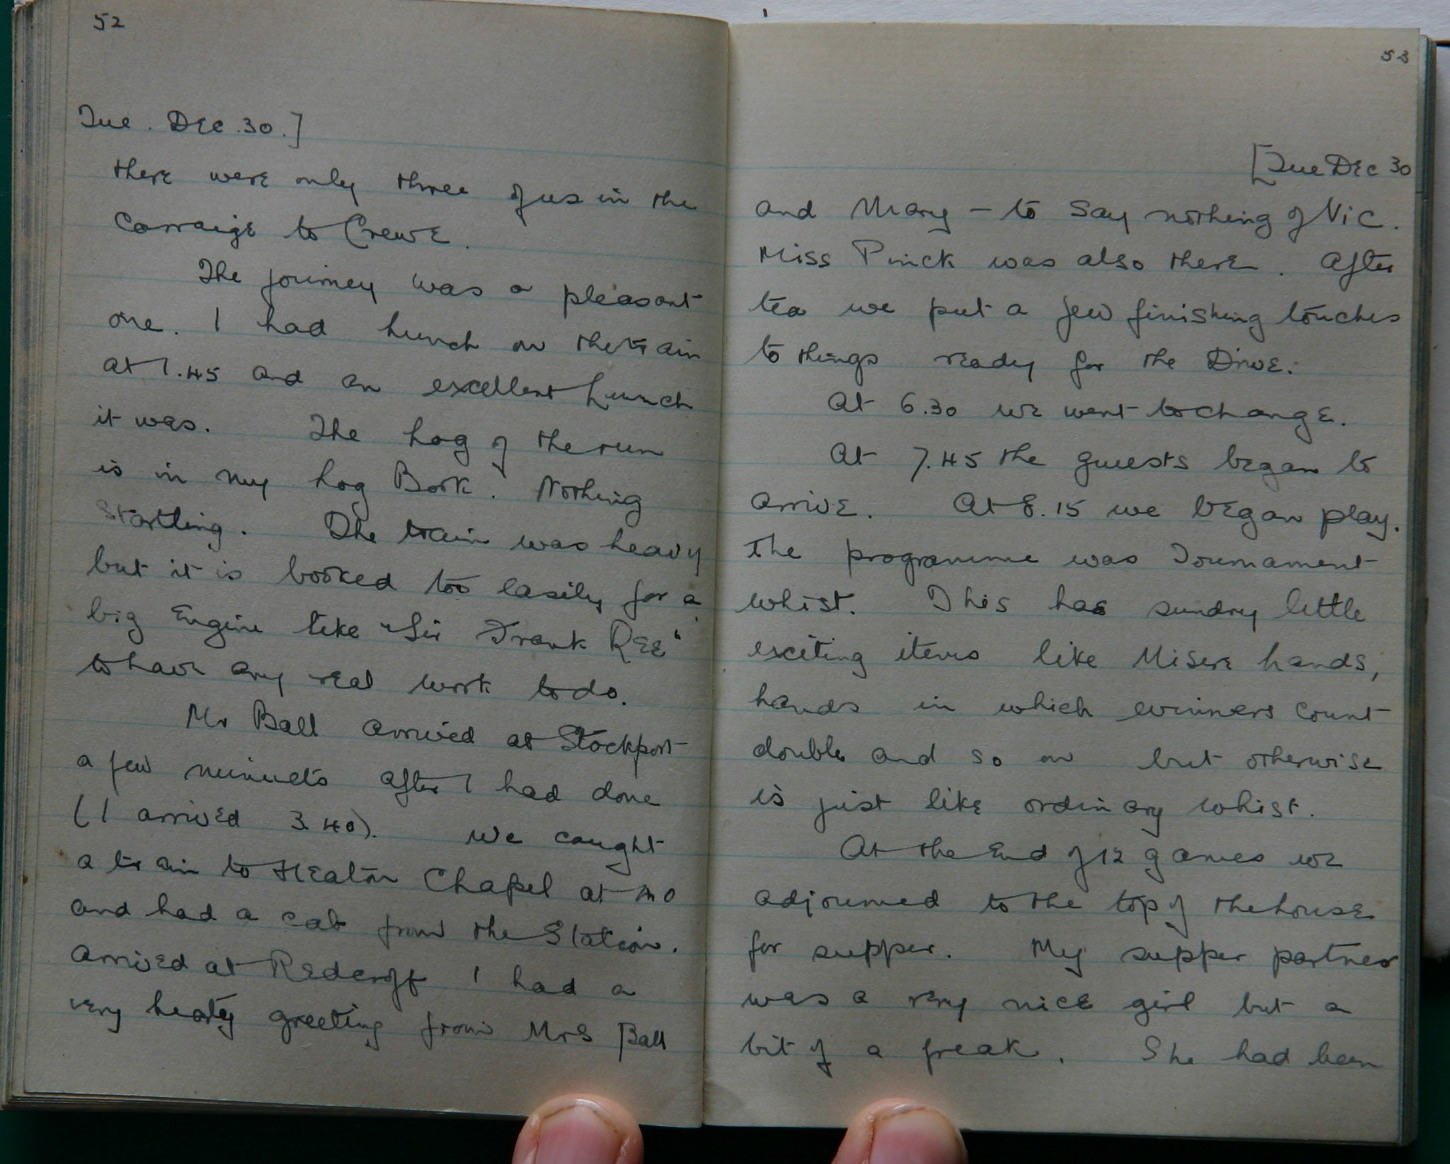 52
Tue. Dec. 30.]
there were only three of us in the
carraige to Crewe.
The journey was a pleasant
one. I had lunch on the train
at 1.45 and an excellent lunch
it was. The log of the run
is in my log Book. Nothing
startling. The train was heavy
but it is booked too easily for a
big Engine like "Sir Frank Ree"
to have any real work to do.
Mr Ball arrived at Stockport
a few minuets after I had done
(I arrived 3.40). We caught
a train to Heaton Chapel at
and had a cab from the Station.
Arrived at Redcroft I had a
very hearty greeting from Mrs Ball
53
[Tue Dec 30
and Mary – to say nothing of Vic.
Miss Pinck was also there. After
tea we put a few finishing touches
to things ready for the Drive.
At 6.30 we went to change.
At 7.45 the guests began to
arrive. At 8.15 we began play.
The programme was Tournament
whist. This has sundry little
exciting items like Misere hands,
hands in which winners count
double and so on but otherwise
is just like ordinary whist.
At the End of 12 games we
adjourned to the top of the house
for supper. My supper partner
was a very nice girl but a
bit of a freak. She had been